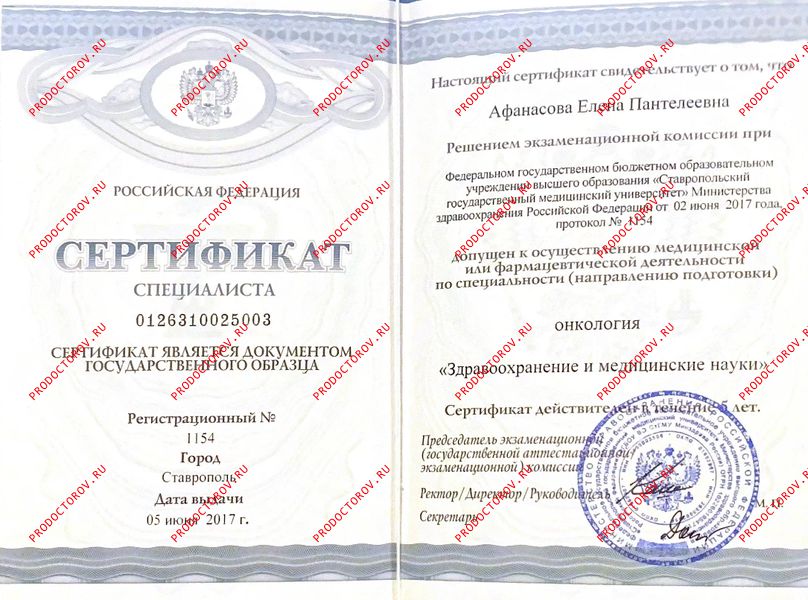 РОССИЙСКАЯ ФЕДЕРАЦИЯ
СЕРТИФИКАТ
СПЕЦИАЛИСТА
0126310025003
СЕРТИФИКАТ ЯВЛЯЕТСЯ ДОКУМЕНТОМ
ГОСУДАРСТВЕННОГО ОБРАЗЦА
Регистрационный №
1154
Город
Ставрополь
Дата выдачи
05 июня 2017 г.
Настоящий сертификат свидетельствует о том, что
Афанасова Елена Пантелеевна
Решением экзаменационной комиссии при
Федеральном государственном бюджетном образовательном
учреждении высшего образования «Ставропольский
государственный медицинский университет» Министерства
здравоохранения Российской Федерации от 02 июня 2017 года,
протокол № 1154
допущен к осуществлению медицинской
или фармацевтической деятельности
по специальности (направлению подготовки)
онкология
«Здравоохранение и медицинские науки»
Сертификат действителен в течение 5 лет.
Председатель экзаменационной
(государственной аттестационной/
экзаменационной) комиссии
Ректор/Директор/Руководитель
Секретарь
М.П.
PRODOCTOROV.RU